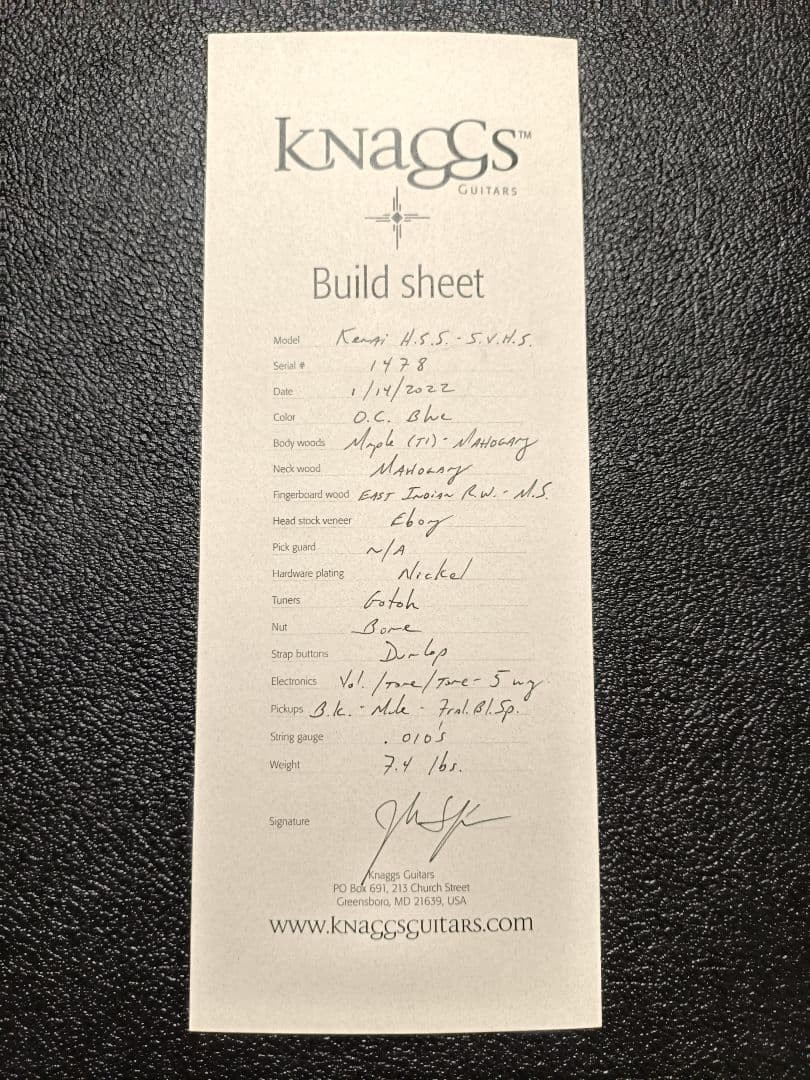 KNaGGS™
GUITARS
Build sheet
Model Kenai H.S.S. - S.V.H.S.
Serial # 1478
Date 1/14/2022
Color O.C. Blue
Body woods Maple (T1) - MAHOGANY
Neck wood MAHOGANY
Fingerboard wood EAST INDIAN R.W. - M.S.
Head stock veneer Ebony
Pick guard N/A
Hardware plating Nickel
Tuners Gotoh
Nut Bone
Strap buttons Dunlop
Electronics Vol./Tone/Tone - 5 wy
Pickups B.k. - Mule - Frnl. Bl. Sp.
String gauge .010's
Weight 7.4 lbs.
Signature
Knaggs Guitars
PO Box 691, 213 Church Street
Greensboro, MD 21639, USA
www.KNaGGSGUITARS.com